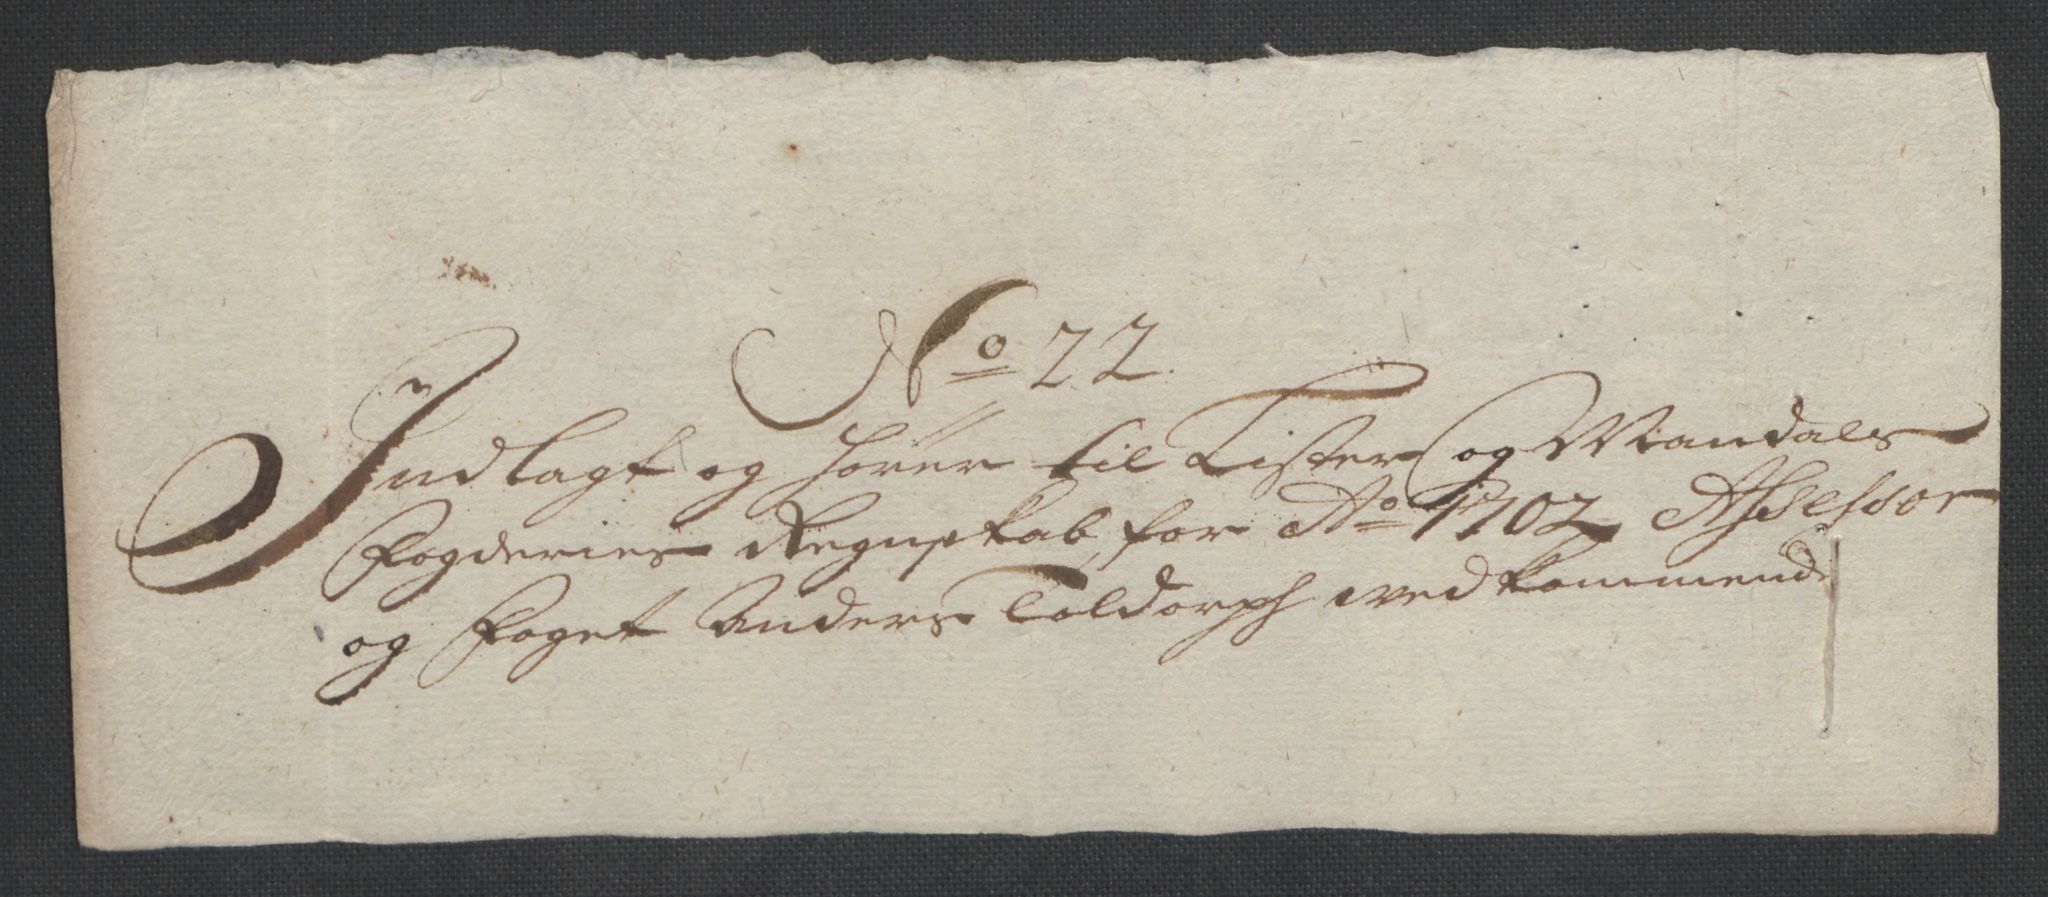 No 22.
Indlagt og hører til Lister og Mandals
Fogderies Regnskab for Ao 1702 Assessor
og Foget Anders Toldorph vedkommende